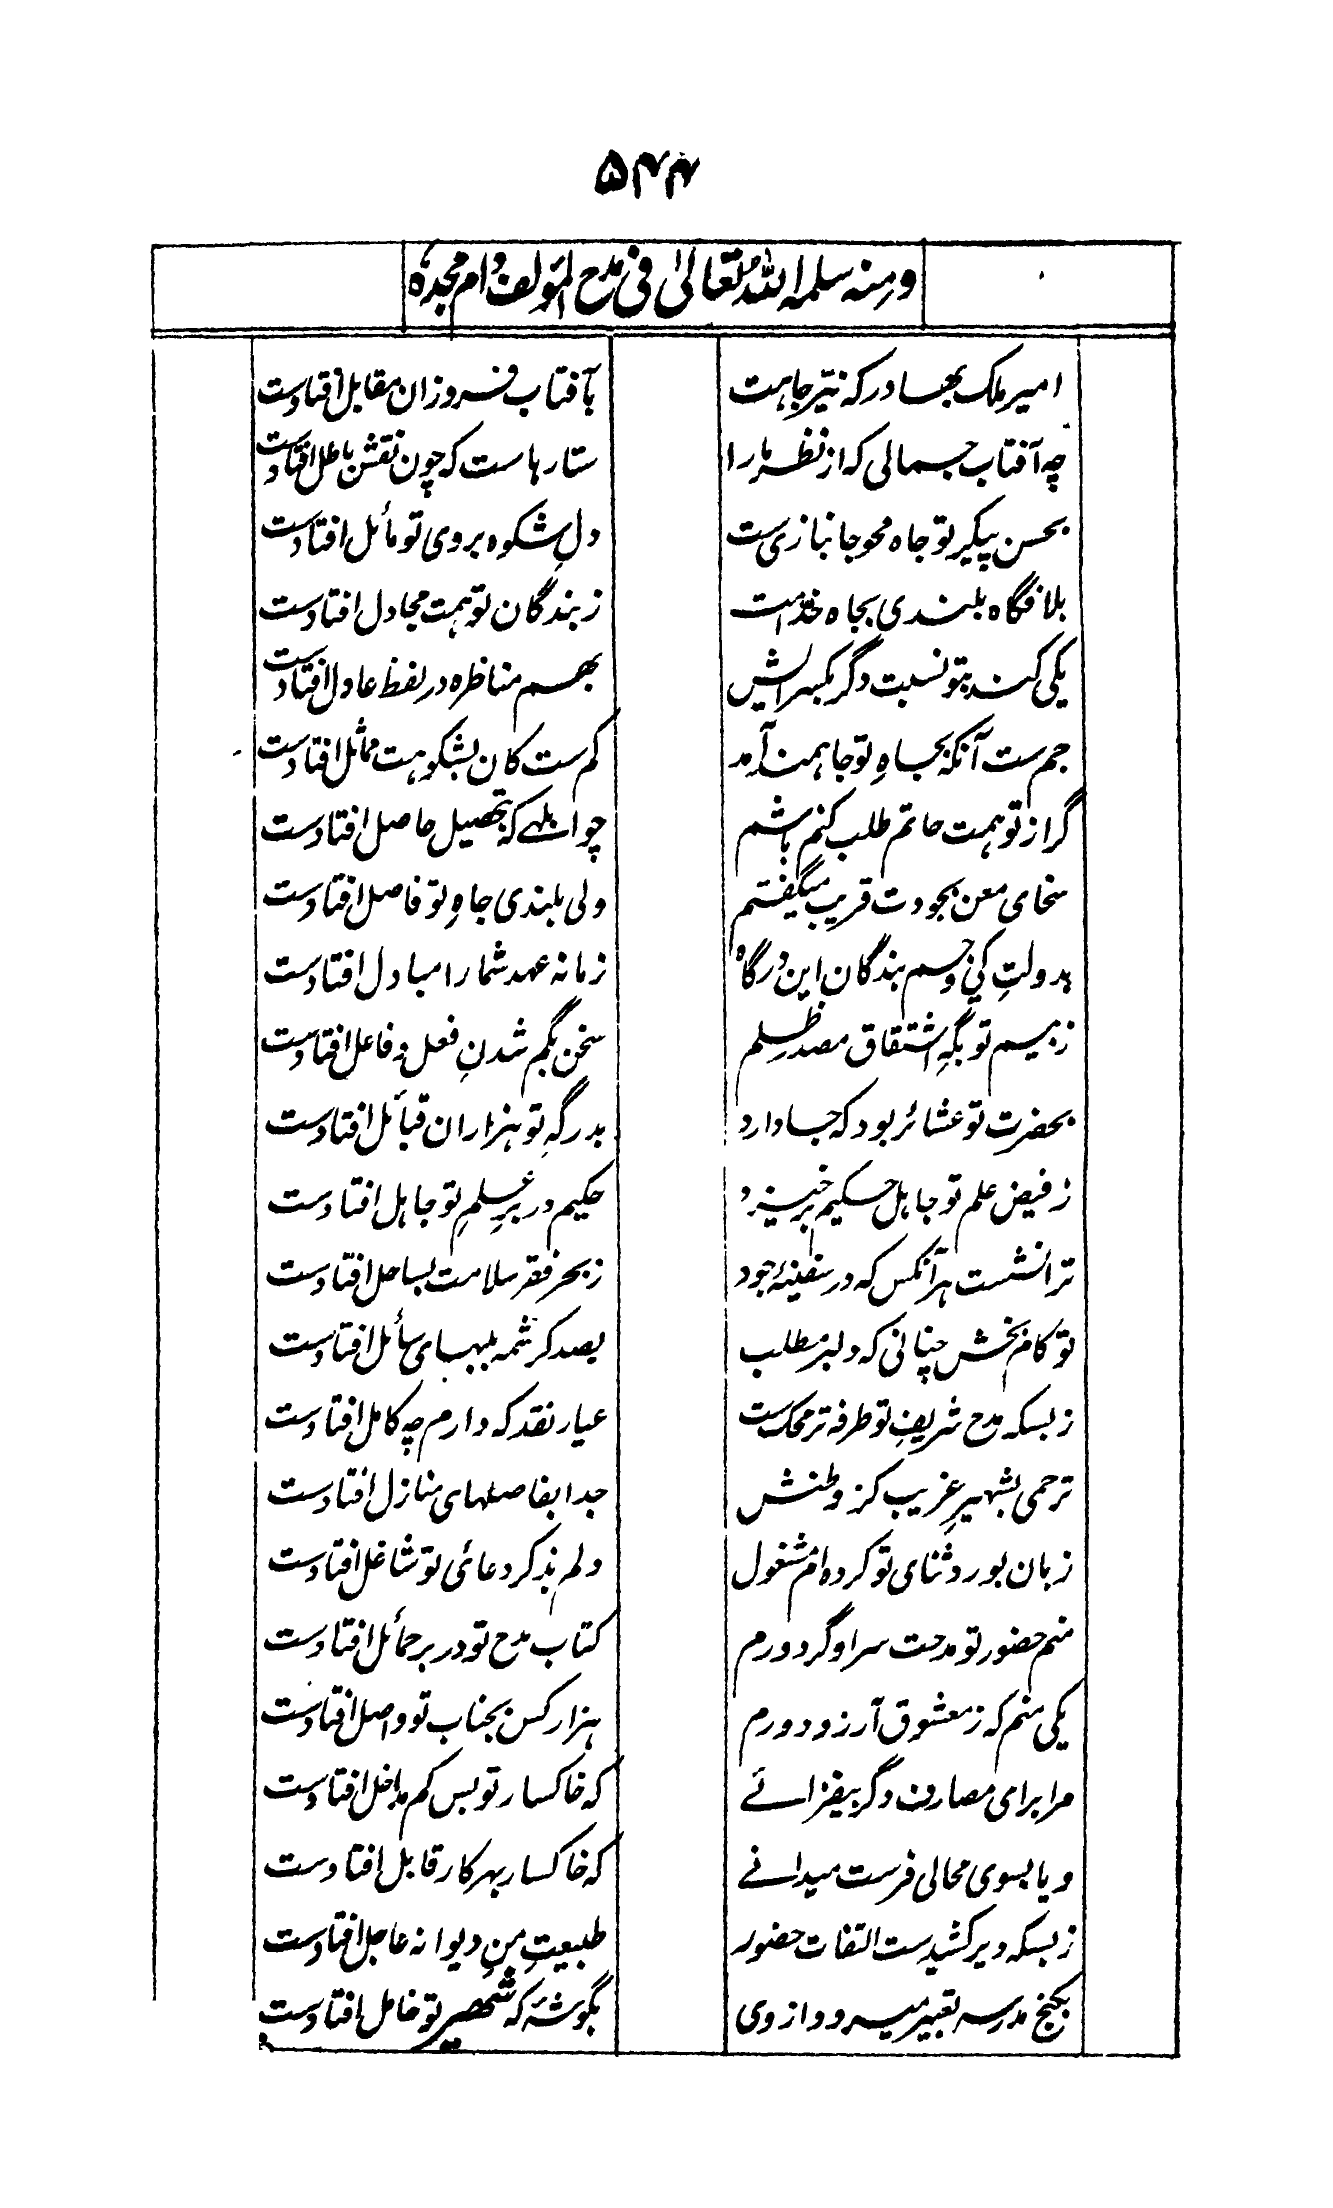 ۵۴۴
ومنه سلمه الله تعالیٰ فی مدح المؤلف دام مجده
امیر ملک بهادر که نیّر جاهت
بآفتاب فروزان مقابل افتادست
چه آفتاب جمالی که از نظر ما را
ستارهاست که چون نقش باطل افتادست
بحسن پیکر تو جاه محو جانبازی ست
دلِ شکوه بروی تو مائل افتادست
بلافگاه بلندی بجاه خدامت
ز بندگان تو همت مجادل افتادست
یکی کند بتو نسبت دگر بکسرایش
بهم مناظره در لفظ عادل افتادست
جم ست آنکه بجاهِ تو جاهمند آمد
کم ست کان بشکوهت مماثل افتادست
گر از تو همت حاتم طلب کنم باشم
چو ابلهے که بتحصیل حاصل افتادست
سخای معن بجودت قریب میگفتم
ولی بلندی جاهِ تو فاصل افتادست
بدولتِ کی و جم بندگان این درگاه
زمانه عهد شما را مبادل افتادست
ز بیم تو بگهِ اشتقاق مصدر ظلم
سخن بگم شدنِ فعل و فاعل افتادست
بحضرت تو عشائر بود که جا دارد
بدرگهِ تو هزاران قبائل افتادست
ز فیض علم تو جاهل حکیم برخیزد
حکیم در برِ علمِ تو جاهل افتادست
ترا نشست هر آنکس که در سفینهٔ جود
ز بحر فقر سلامت بساحل افتادست
تو کام بخش چنانی که دلبر مطلب
بصد کرشمه بلبهای سائل افتادست
ز بسکه مدح شریفِ تو طرفه تر محک ست
عیار نقد که دارم چه کامل افتادست
ترحمی بشهیرِ غریب کز وطنش
جدا بفاصلهای منازل افتادست
زبان بورد ثنای تو کرده ام مشغول
دلم بذکر دعائی تو شاغل افتادست
منم حضور تو مدحت سرا و گر دورم
کتاب مدح تو در بر حمائل افتادست
یکی منم که ز معشوق آرزو دورم
هزار کس بجناب تو واصل افتادست
مرا برای مصارف دگر بیفزائے
که خاکسار تو بس کم مداخل افتادست
و یا بسوی محالی فرست میدانے
که خاکسار بهر کار قابل افتادست
ز بسکه دیر کشیدست التفات حضور
طبیعتِ منِ دیوانه عاجل افتادست
بکنج مدرسه تعبیر میرود از وی
بگوشهٔ که شهیر تو خامل افتادست